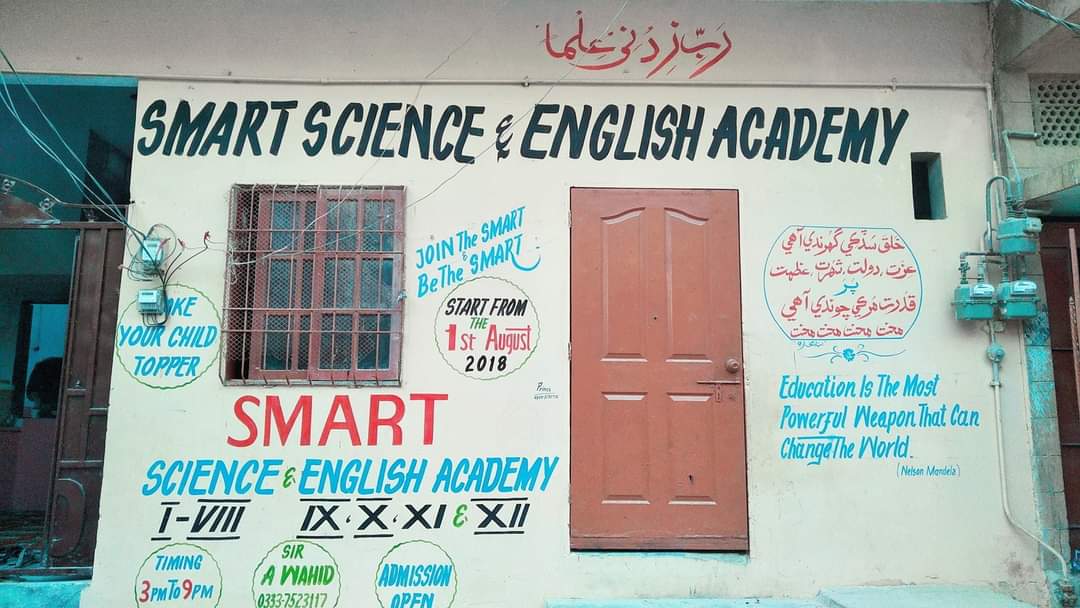 رَبِّ زِدْنِی عِلْما
SMART SCIENCE & ENGLISH ACADEMY
JOIN The SMART
&
Be The SMART
START FROM
THE
1st August
2018
YOUR CHILD
TOPPER
خلق سڌڪي گهرندي آهي
عزت، دولت، شهرت، عظمت
پر
قدرت مرڪي چوندي آهي
محنت محنت محنت محنت
Education Is The Most
Powerful Weapon That Can
Change The World.
(Nelson Mandela)
Prince
SMART
SCIENCE & ENGLISH ACADEMY
I-VIII IX, X, XI & XII
TIMING
3PM TO 9PM
SIR
A WAHID
0333-7523117
ADMISSION
OPEN